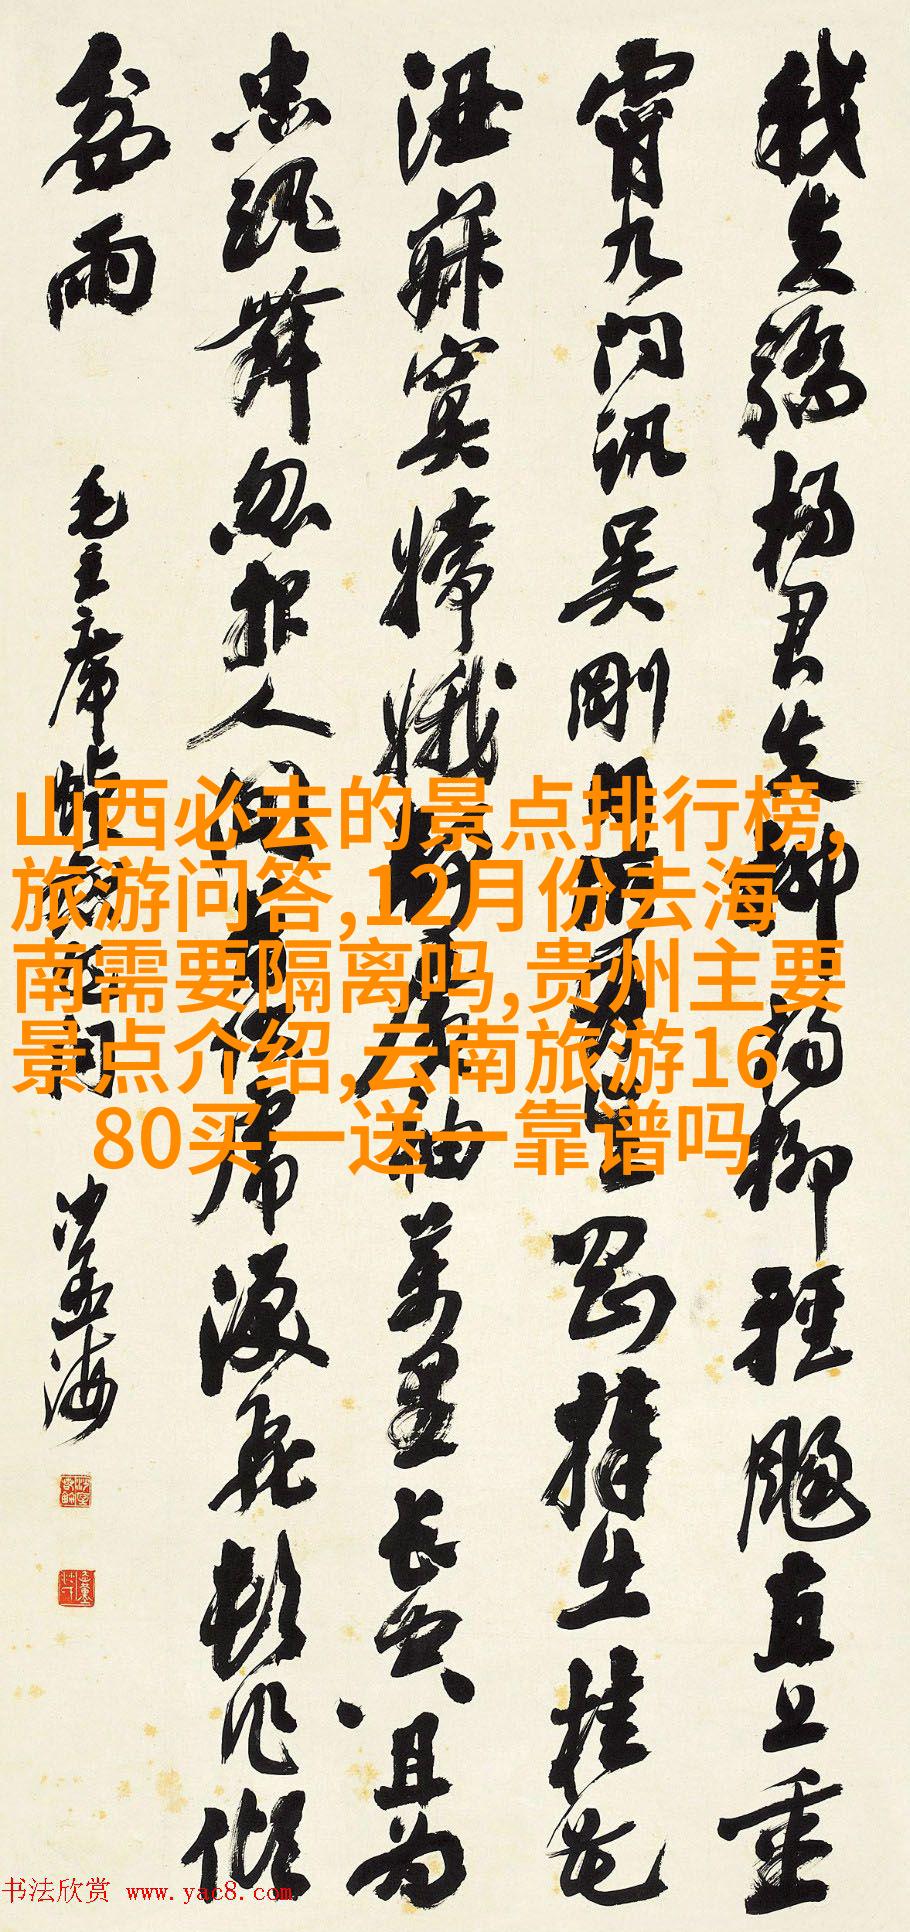 我失驕杨君失柳杨柳輕飏直上重
霄九问讯吴剛何所有吴刚捧出桂花
酒寂寞嫦娥舒廣袖萬里长空且为
忠魂舞忽报人间曾伏虎淚飛頓作傾
盆雨
毛主席蝶戀花词
沙孟海
山西必去的景点排行榜,
旅游问答,12月份去海
南需要隔离吗,贵州主要
景点介绍,云南旅游16
80买一送一靠谱吗
书法欣赏 www.yac8.com